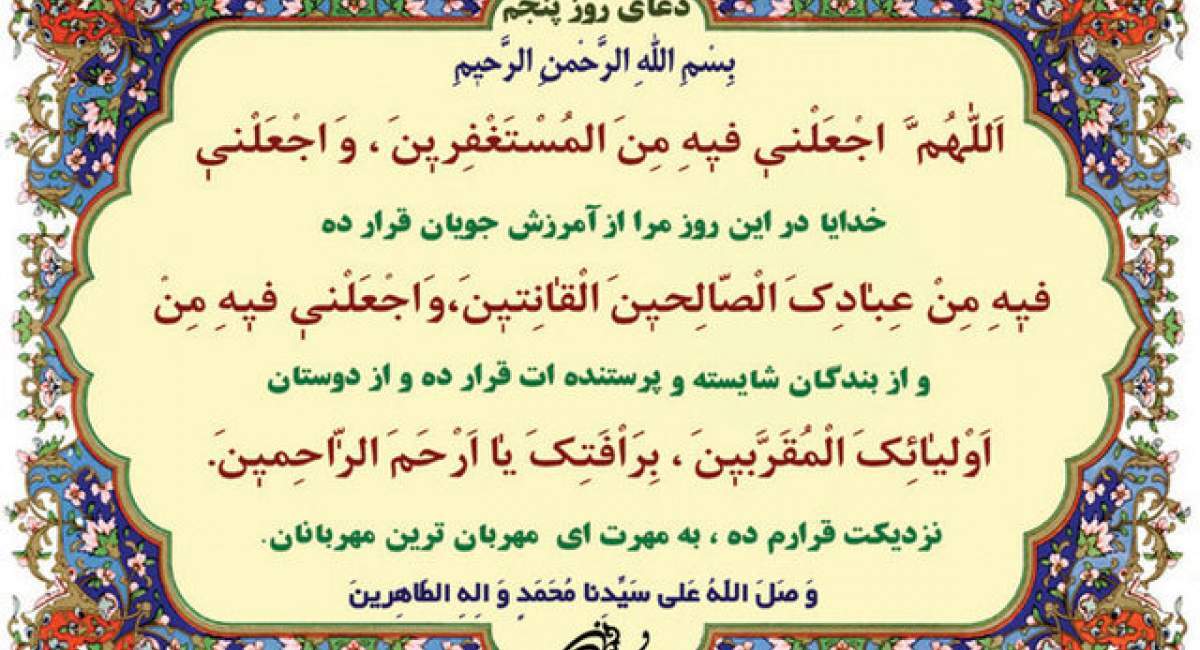 دعای روز پنجم
بِسْمِ اللهِ الرَّحْمٰنِ الرَّحیٖمِ
اَللّٰهُمَّ اجْعَلْنیٖ فیٖهِ مِنَ المُسْتَغْفِریٖنَ ، وَ اجْعَلْنیٖ
خدایا در این روز مرا از آمرزش جویان قرار ده
فیٖهِ مِنْ عِبٰادِکَ الْصّٰالِحیٖنَ الْقٰانِتیٖنَ،وَاجْعَلْنیٖ فیٖهِ مِنْ
و از بندگان شایسته و پرستنده ات قرار ده و از دوستان
اَوْلیٰائِکَ الْمُقَرَّبیٖنَ ، بِرَاْفَتِکَ یٰا اَرْحَمَ الرّٰاحِمیٖنَ.
نزدیکت قرارم ده ، به مهرت ای مهربان ترین مهربانان.
وَ صَلَ اللهُ عَلی سَیِّدِنا مُحَمَدٍ وَ الِهِ الطٰاهِرینَ